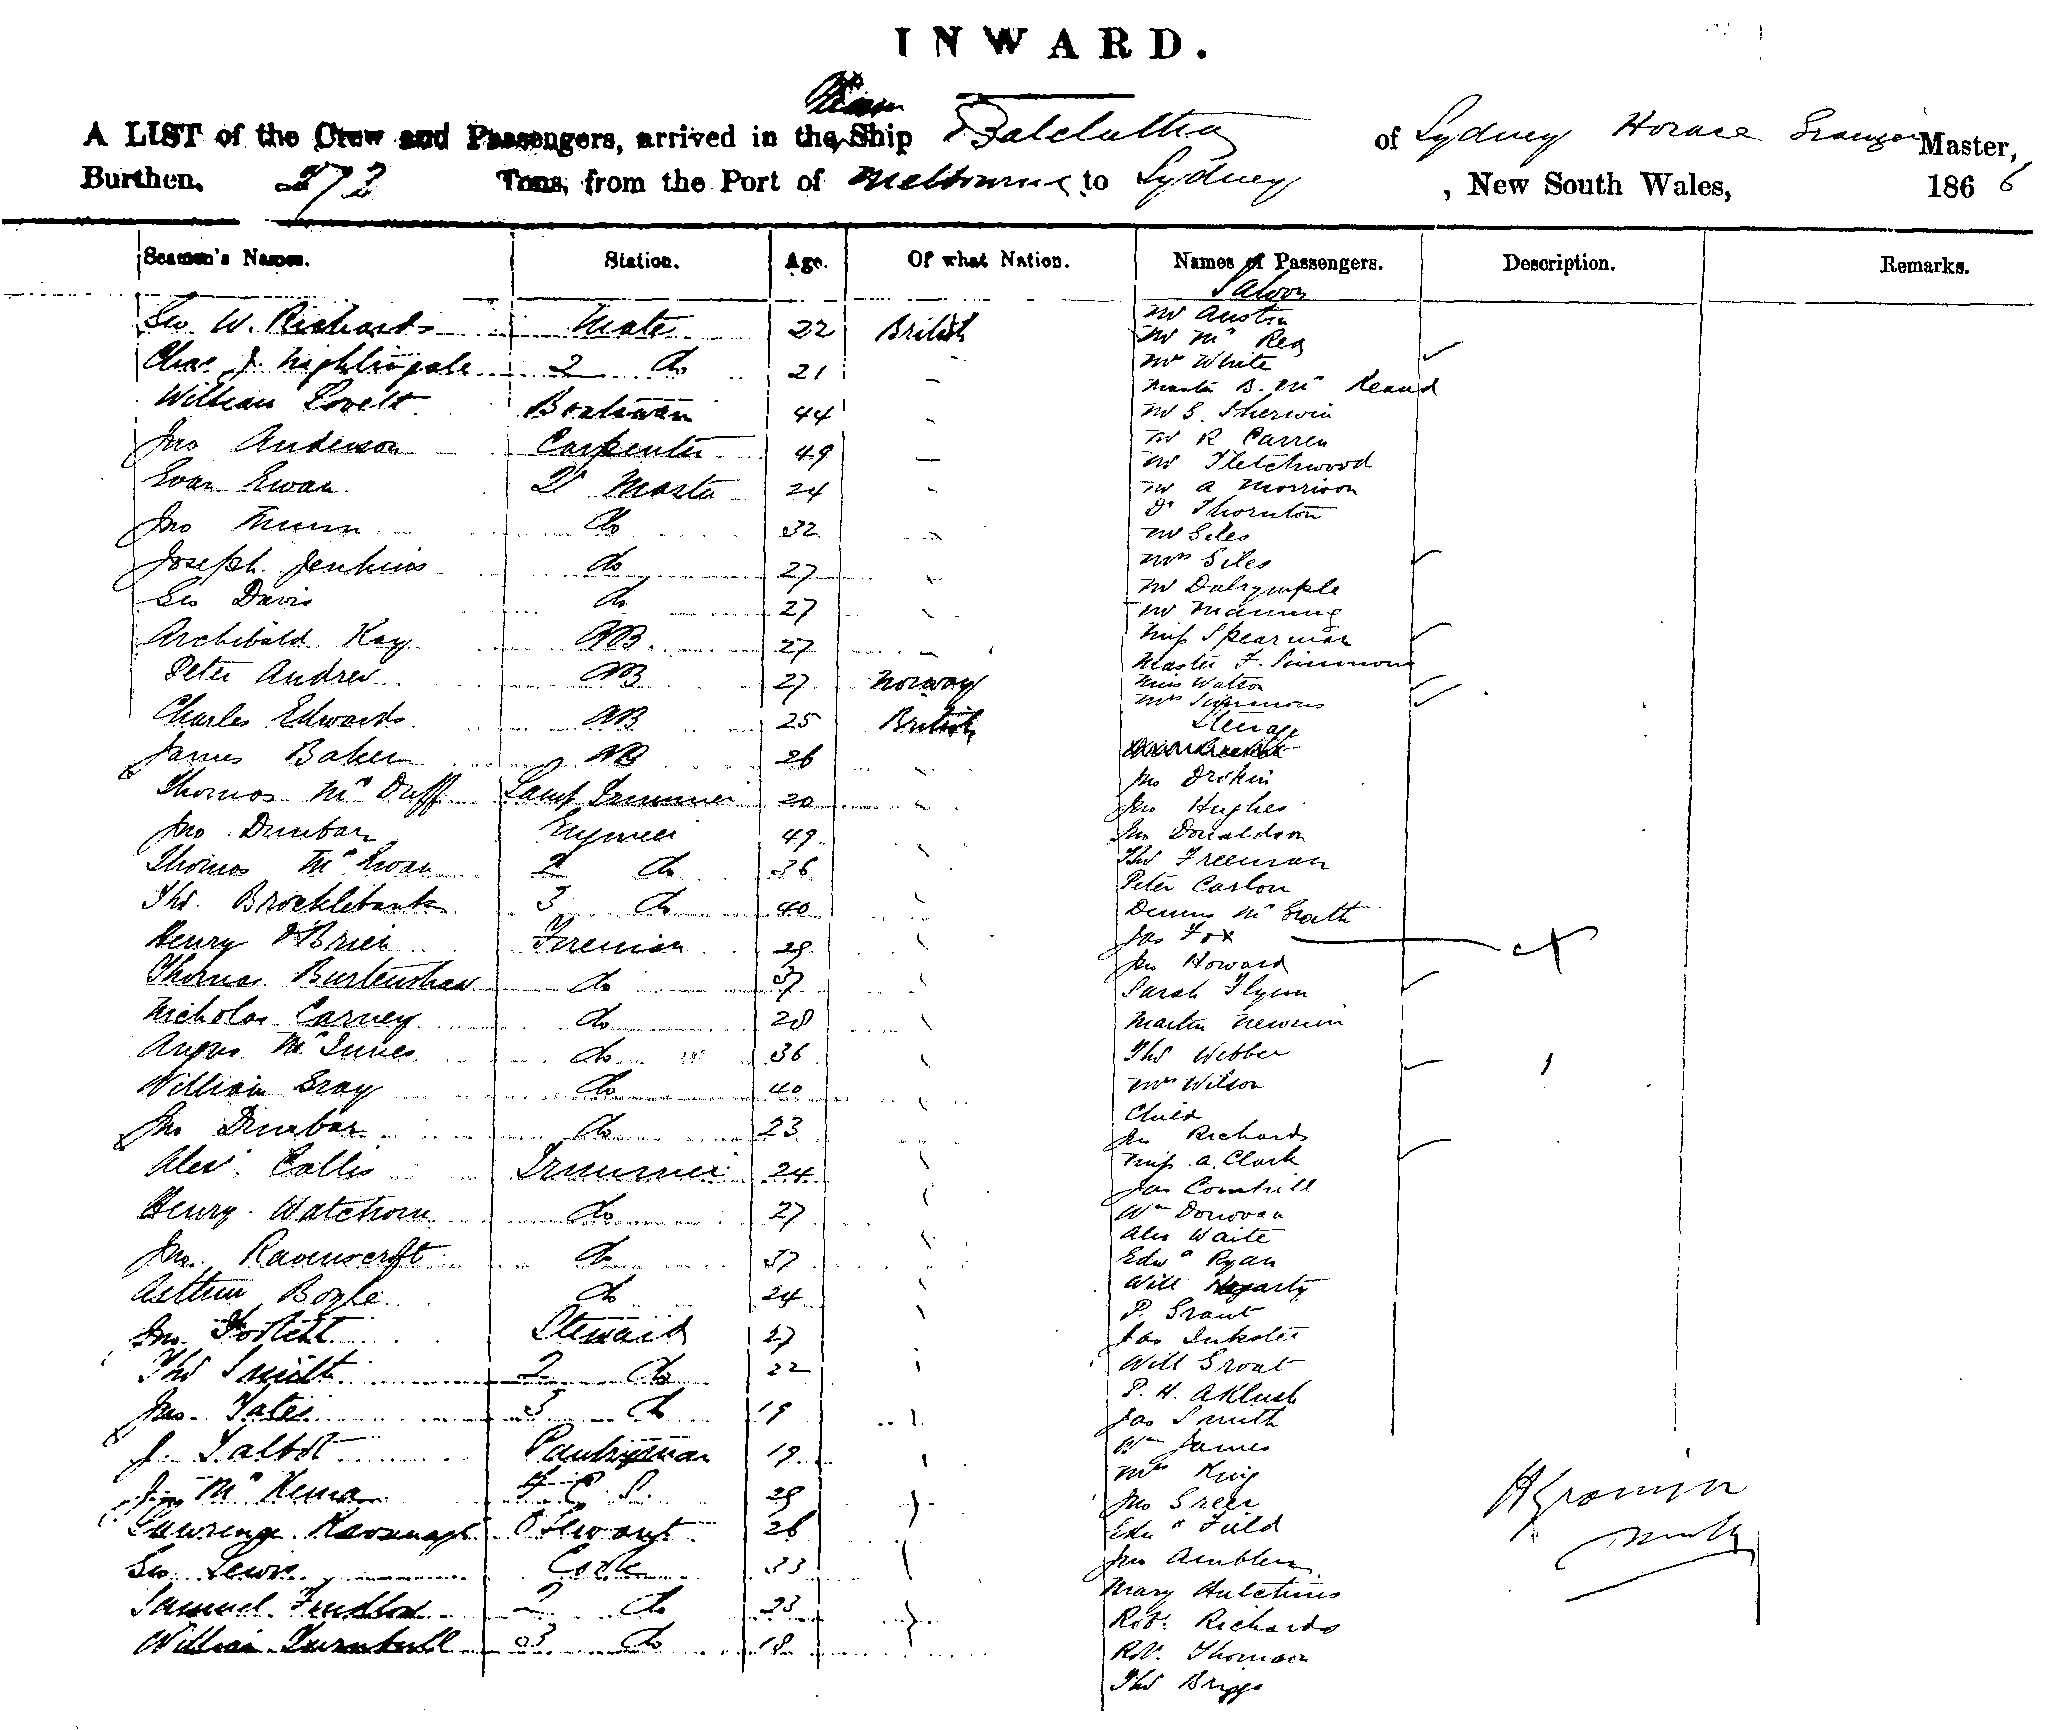 INWARD.
Steam
A LIST of the Crew and Passengers, arrived in the Ship Balclutha of Sydney Horace Master,
Burthen, 272 Tons, from the Port of Melbourne to Sydney, New South Wales, 1866
Seamen's Names. Station. Age. Of what Nation. Names of Passengers. Description. Remarks.
Saloon
Geo W. Richards Mate 22 British
Chas J. Nightingale 2 do 21
William Lovett Boatswain 44
Jno Anderson Carpenter 49
Evan Ewan Qr Master 24
Jno Munn do 32
Joseph Jenkins do 27
Geo Davis do 27
Archibald Kay AB 27
Peter Andrew AB 27 Norway
Charles Edwards AB 25 British
James Baker AB 26
Thomas Mc Duff Lamp Trimmer 20
Jno Dunbar Engineer 49
Thomas Mc Ewan 2 do 36
Thos. Brocklebank 3 do 40
Henry O'Brien Fireman 29
Thomas Burtenshaw do 37
Nicholas Carney do 28
Angus Mc Innes do 36
William Gray do 40
Jno Dunbar do 23
Alexr. Collis Trimmer 24
Henry Watchorn do 27
Jno. Ravenscroft do 37
Arthur Boyle do 24
Jno. Steward 27
Thos Smith 2 do 22
Jno. Yates 3 do 19
J. Talbot Pantryman 19
Jno Mc Kenna F. C. S. 29
Lawrence Kavanagh Servant 26
Geo Lewis Cook 33
Samuel 2 do 23
William Turnbull 3 do 18
Mr Austin
Mr Mc Rea
Mr White
Master B. Mc
Mr S. Sherwin
Mr R Carren
Mr Fletchwood
Mr A Morrison
Dr Thornton
Mr Giles
Mrs Giles
Mr Dalrymple
Mr Manning
Miss Spearman
Master F. Simmons
Miss Watson
Mrs Simmons
Steerage
Jno
Jno Hughes
Jno Donaldson
Thos Freeman
Peter Carlon
Dennis Mc Grath
Jas Fox
Jno Howard
Sarah Flynn
Martin
Thos Webber
Mrs Wilson
Child
Jno Richards
Miss A. Clark
Jas Cornhill
Wm Donovan
Alex Waite
Edwd Ryan
Will Hegarty
P. Grant
Jas Inkster
Will Grant
P. H.
Jas Smith
Wm James
Mrs King
Jno Greer
Edwd Field
Jno Ambler
Mary Hutchins
Robt. Richards
Robt. Thomson
Thos Briggs
Master